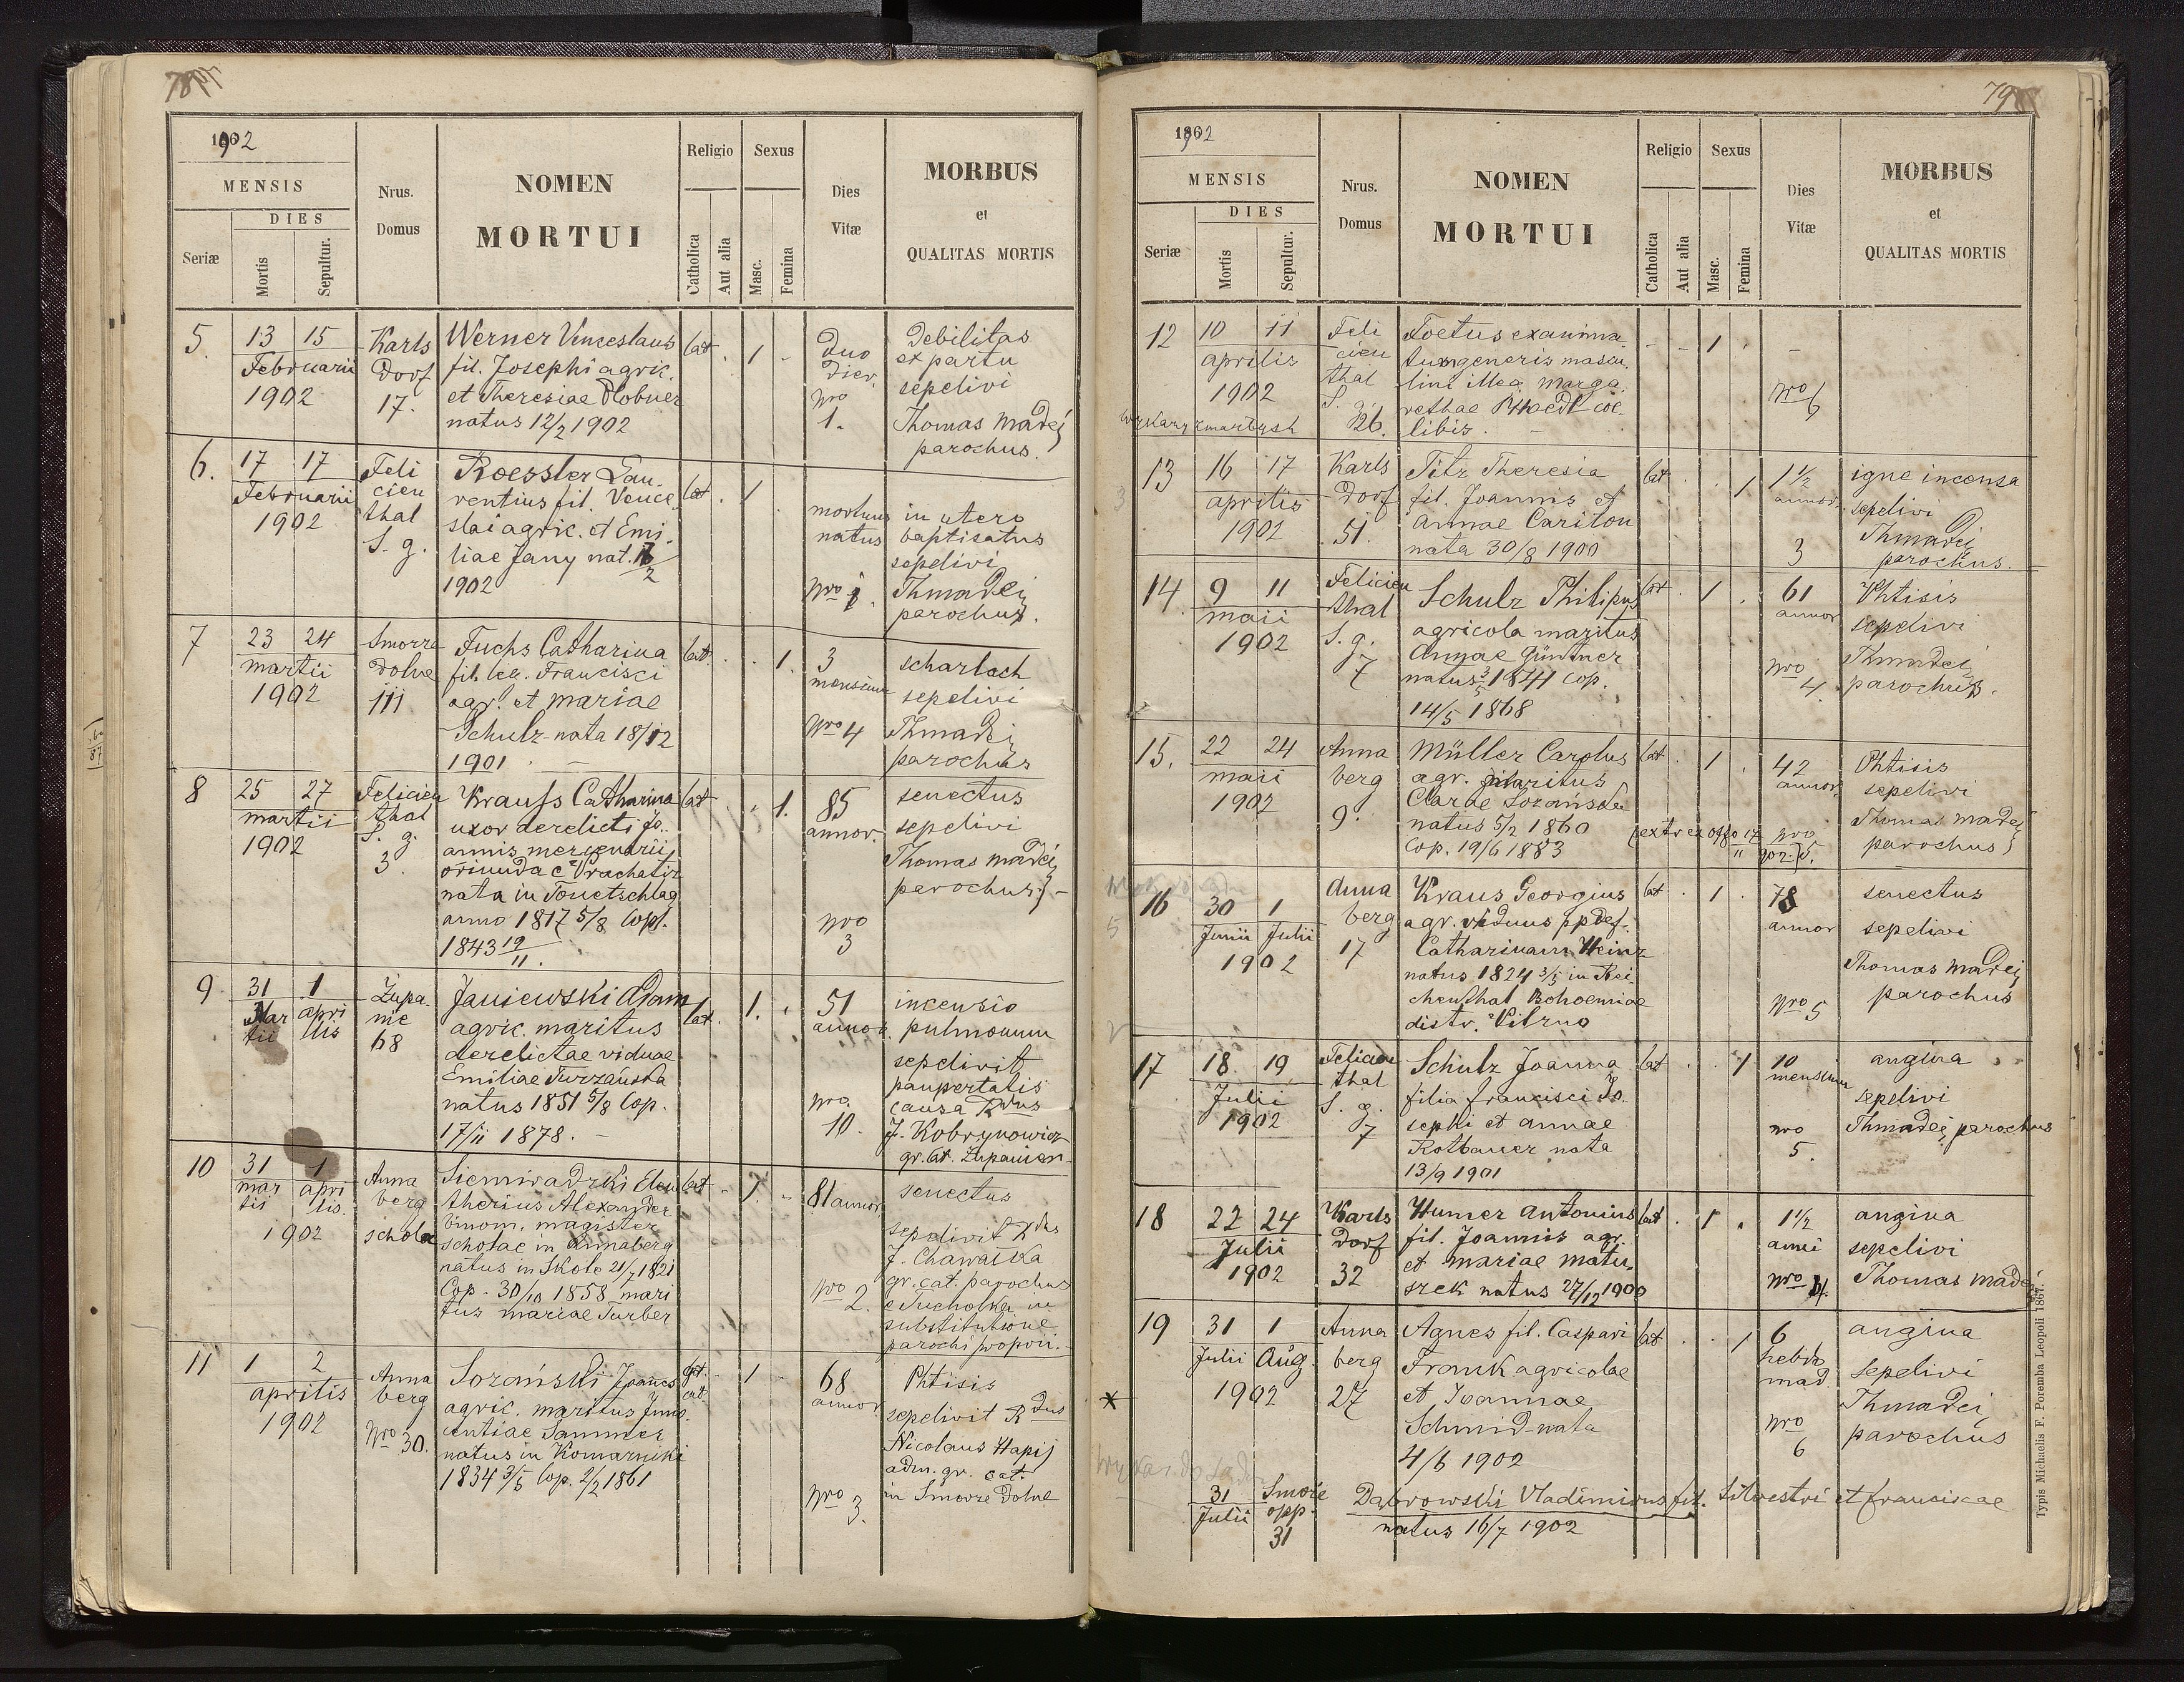 78
1902
MENSIS
DIES
Seriæ
Mortis
Sepultur.
Nrus.
Domus
NOMEN
MORTUI
Religio
Catholica
Aut alia
Sexus
Masc.
Femina
Dies
Vitæ
MORBUS
et
QUALITAS MORTIS
5.
13 15
Februarii
1902
Karls
dorf
17.
Werner Venceslaus
fil. Josephi agric.
et Theresiae
natus 12/2 1902
lat. . 1 -
Duo
dier.
nro
1.
Debilitas
ex partu
sepelivi
Thomas Madej
parochus.
6.
17 17
Februarii
1902
Feli
cien
thal
S. g.
Roessler Lau-
rentius fil. Vence
slai agric. et Emi-
liae Jany nat. 17/2
1902
lat . 1
mortuus
natus
nro 1.
in utero
baptisatus
sepelivi
Thmadej
parochus.
7
23 24
martii
1902
Smorze
dolne
111
Fuchs Catharina
fil. leg. Francisci
agr. et Mariae
Schulz nata 18/12
1901
lat. . . 1.
3
mensium
Nro 4
scharlach
sepelivi
Thmadej
parochus
8
25 27
martii
1902
Felicien
thal
S. g.
3.
Krauss Catharina
uxor derelicti Jo-
annis mercenarii
oriunda e Prachatiz
nata in Tonetschlag
anno 1817 5/8 Copl.
1843 19/11.
lat . . 1.
85
annor.
nro
3
senectus
sepelivi
Thomas Madej
parochus
9
31 1
Mar apri
tii lis
Żupa-
nie
68
Janiewski Adam
agric. maritus
derelictae viduae
Emiliae Turzańska
natus 1851 5/8 Cop.
17/11 1878. -
lat. 1. .
51
annor.
nro
10.
incensio
pulmonum
sepelivit
paupertatis
causa Rdus
J. Kobrynowicz
gr. cat. Żupanien.
10
31 1
mar apri
tii lis.
1902
Anna
berg
schola
Siemiradzki Eleu
therius Alexander
binom. magister
scholae in Annaberg
natus in Skole 21/7 1821
Cop. 30/10 1858 mari
tus Mariae Turber
lat - 1. -
81 annor.
nro 2.
senectus
sepelivit Rdus
J. Chawałka
gr. cat. parochus
e Tucholka in
substitutione
parochi proprii.-
11
1 2
aprilis
1902
Anna
berg
Nro 30.
Sozański Joanes
agric. maritus Inno-
centiae Sammer
natus in Komarniki
1834 3/5 Cop. 2/2 1861
gr.
cat. - 1 -
68
annor
nro 3.
Phtisis
sepelivit Rdus
Nicolaus Hapij
adm. gr. cat.
in Smorze Dolne
79
1902
MENSIS
DIES
Seriæ
Mortis
Sepultur.
Nrus.
Domus
NOMEN
MORTUI
Religio
Catholica
Aut alia
Sexus
Masc.
Femina
Dies
Vitæ
MORBUS
et
QUALITAS MORTIS
12
10 11
aprilis
1902
Feli
cien
thal
S. g.
26.
Foetus exanima-
tus generis mascu-
lini illeg. Marga-
rethae coe-
libis.
- - 1 . -
nro 6
13
16 17
aprilis
1902
Karls
dorf
51.
Titz Theresia
fil. Joannis et
Annae Cariton
nata 30/8 1900
lat . . 1
1 1/2
annor.
3
igne incensa
sepelivi
Thmadej
parochus.
14
9 11
maii
1902
Felicien
thal
S. g.
7
Schulz Philipus
agricola maritus
Annae Güntner
natus 3/5 1841 Cop.
14/5 1868
lat . 1 .
61
annor
nro
4
Phtisis
sepelivi
Thmadej
parochus.
15.
22 24
maii
1902
Anna
berg
9.
Müller Carolus
agr. maritus
Clarae Sozańska
natus 5/2 1860
Cop. 19/6 1883
lat . 1 .
42
annor.
nro
5.
Phtisis
sepelivi
Thomas Madej
parochus
(extr ex offo 17/11 902.)
16
30 1
Junii Julii
1902
Anna
berg
17
Kraus Georgius
agr. viduus p def.
Catharinam Heinz
natus 1824 3/5 in Rei
chenthal Bohoemiae
distr.
lat . 1 .
78
annor
Nro 5
senectus
sepelivi
Thomas Madej
parochus
17
18 19
Julii
1902
Felicien
thal
S. g.
7
Schulz Joanna
filia Francisci Jo-
sephi et Annae
Rotbauer nata
13/9 1901
lat . . 1
10
mensium
nro
5.
angina
sepelivi
Thmadej parochus
18
22 24
Julii
1902
Karls
dorf
32
Humer Antonius
fil. Joannis agr.
et Mariae Matu-
szek natus 27/12 1900
lat . 1 .
1 1/2
anni
nro 4.
angina
sepelivi
Thomas Madej
19
31 1
Julii Aug
1902
Anna
berg
27
Agnes fil. Caspari
Frank agricolae
et Joannae
Schmid nata
4/6 1902
lat . . 1
6
hebdo
mad.
nro
6
angina
sepelivi
Thmadej
parochus
31
Julii
Smorze
opp.
31
Dąbrowski Vladimirus fil. Silvestri et Franciscae
natus 16/7 1902
Typis Michaelis F. Poremba Leopoli 1867.